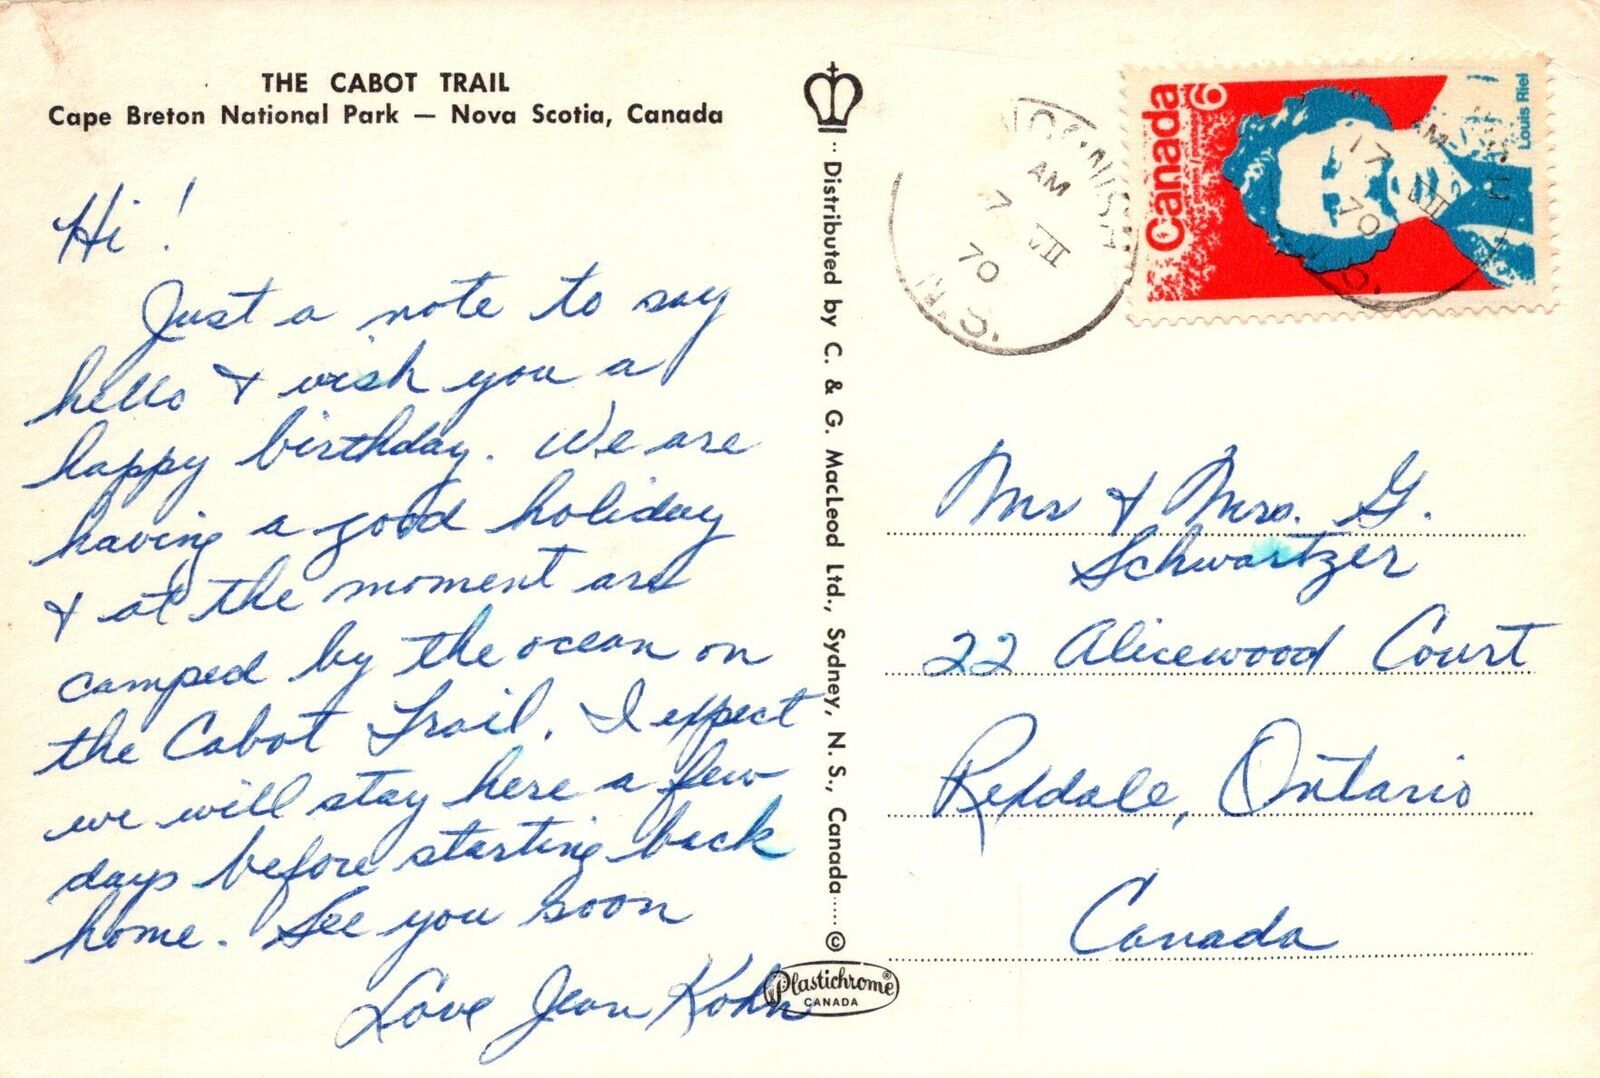 THE CABOT TRAIL
Cape Breton National Park — Nova Scotia, Canada
Hi!
Just a note to say
hello & wish you a
happy birthday. We are
having a good holiday
& at the moment are
camped by the ocean on
the Cabot Trail. I expect
we will stay here a few
days before starting back
home. See you soon
Love Jean Kohn
Distributed by C. & G. MacLeod Ltd., Sydney, N. S., Canada ©
Plastichrome®
CANADA
AM
VII
70
Canada 6
Louis Riel
AM
17 VII
70
Mr & Mrs. G.
Schwartzer
22 Alicewood Court
Rexdale, Ontario
Canada